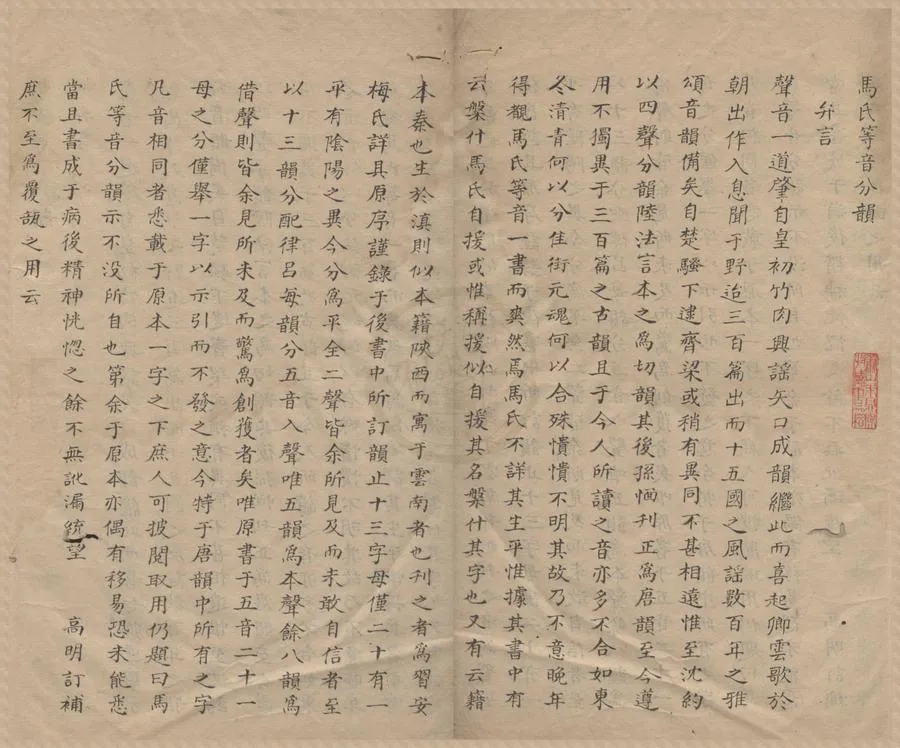 馬氏等音分韻
弁言
聲音一道肇自皇初竹肉興謡矢口成韻繼此而喜起卿雲歌於
朝出作入息聞于野迨三百篇出而十五國之風謡數百年之雅
頌音韻備矣自楚騷下逮齊梁或稍有異同不甚相遠惟至沈約
以四聲分韻陸法言本之爲切韻其後孫愐刊正爲唐韻至今遵
用不獨異于三百篇之古韻且于今人所讀之音亦多不合如東
冬清青何以分佳街元魂何以合殊憒憒不明其故乃不意晚年
得觀馬氏等音一書而爽然焉馬氏不詳其生平惟據其書中有
云槃什馬氏自援或惟稱援似自援其名槃什其字也又有云籍
本秦也生於滇則似本籍陝西而寓于雲南者也刊之者爲習安
梅氏詳具原序謹錄于後書中所訂韻止十三字母僅二十有一
平有陰陽之異今分爲平全二聲皆余所見及而未敢自信者至
以十三韻分配律吕每韻分五音入聲唯五韻爲本聲餘八韻爲
借聲則皆余見所未及而驚爲創獲者矣唯原書于五音二十一
母之分僅舉一字以示引而不發之意今特于唐韻中所有之字
凡音相同者悉載于原本一字之下庶人可披閱取用仍題曰馬
氏等音分韻示不没所自也第余于原本亦偶有移易恐未能悉
當且書成于病後精神恍惚之餘不無訛漏統望　高明訂補
庶不至爲覆瓿之用云